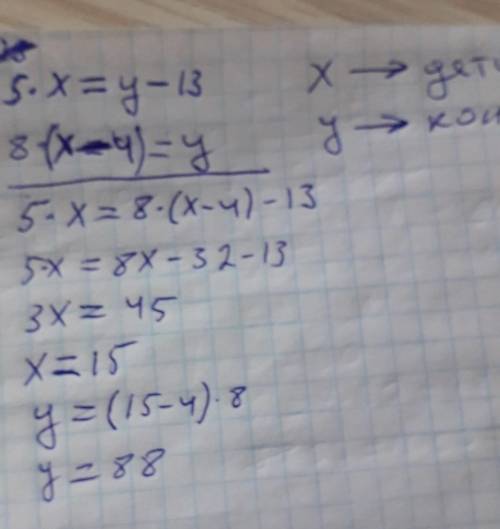 5·x = y - 13
x →
8·(x-4) = y
y →
5·x = 8·(x-4) - 13
5·x = 8x - 32 - 13
3x = 45
x = 15
y = (15-4)·8
y = 88